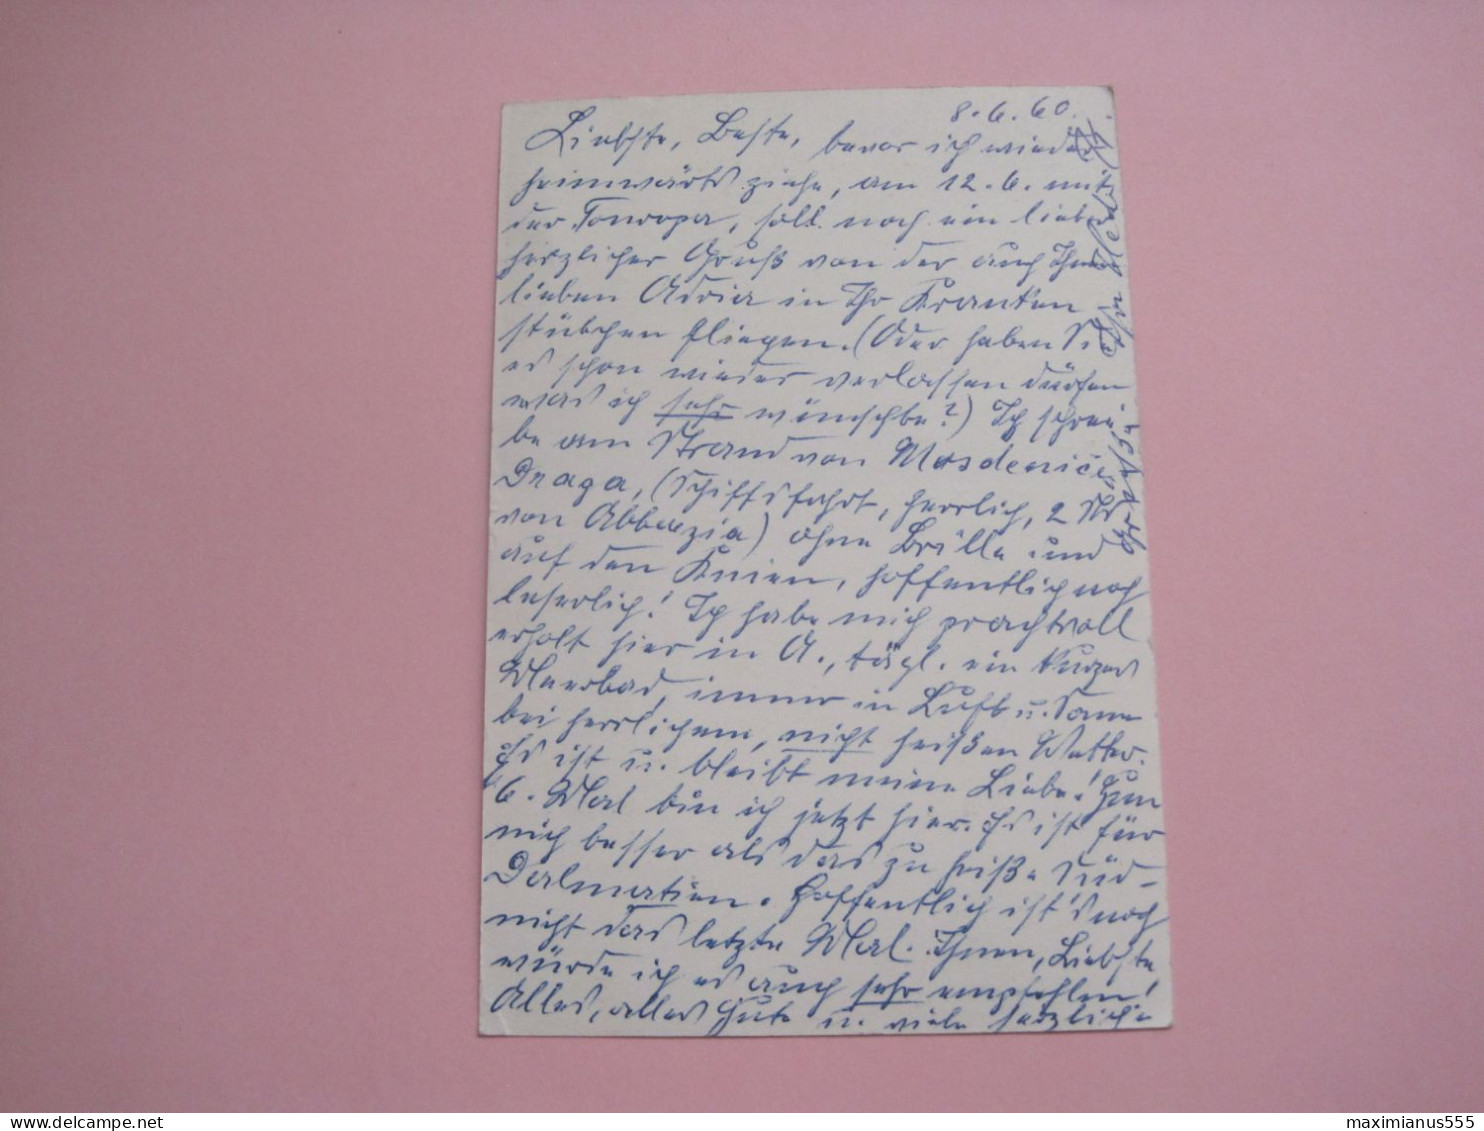 8.6.60.
Liebste, Beste, bevor ich wieder
heimwärts ziehe, am 12.6. mit
der Touropa, soll noch ein lieber
herzlicher Gruß von der auch Ihnen
lieben Adria in Ihr Kranken
stübchen fliegen. (Oder haben Sie
es schon wieder verlassen dürfen
was ich sehr wünschte?) Ich schrei
be am Strand von
Draga, (Schiffsfahrt, herrlich, 2 Std
von Abbazia) ohne Brille und
auf den Knien, hoffentlich noch
leserlich! Ich habe mich prachtvoll
erholt hier in A., tägl. ein kurzes
Meerbad, immer in Luft u. Sonne
bei herrlichem, nicht heißen Wetter.
Es ist u. bleibt meine Liebe! Zum
6. Mal bin ich jetzt hier. Es ist für
mich besser als das zu heiße Süd-
Dalmatien. Hoffentlich ist's noch
nicht das letzte Mal. Ihnen, Liebste
würde ich es auch sehr empfehlen!
Alles, alles Gute u. viele herzliche
Grüße
maximianus555